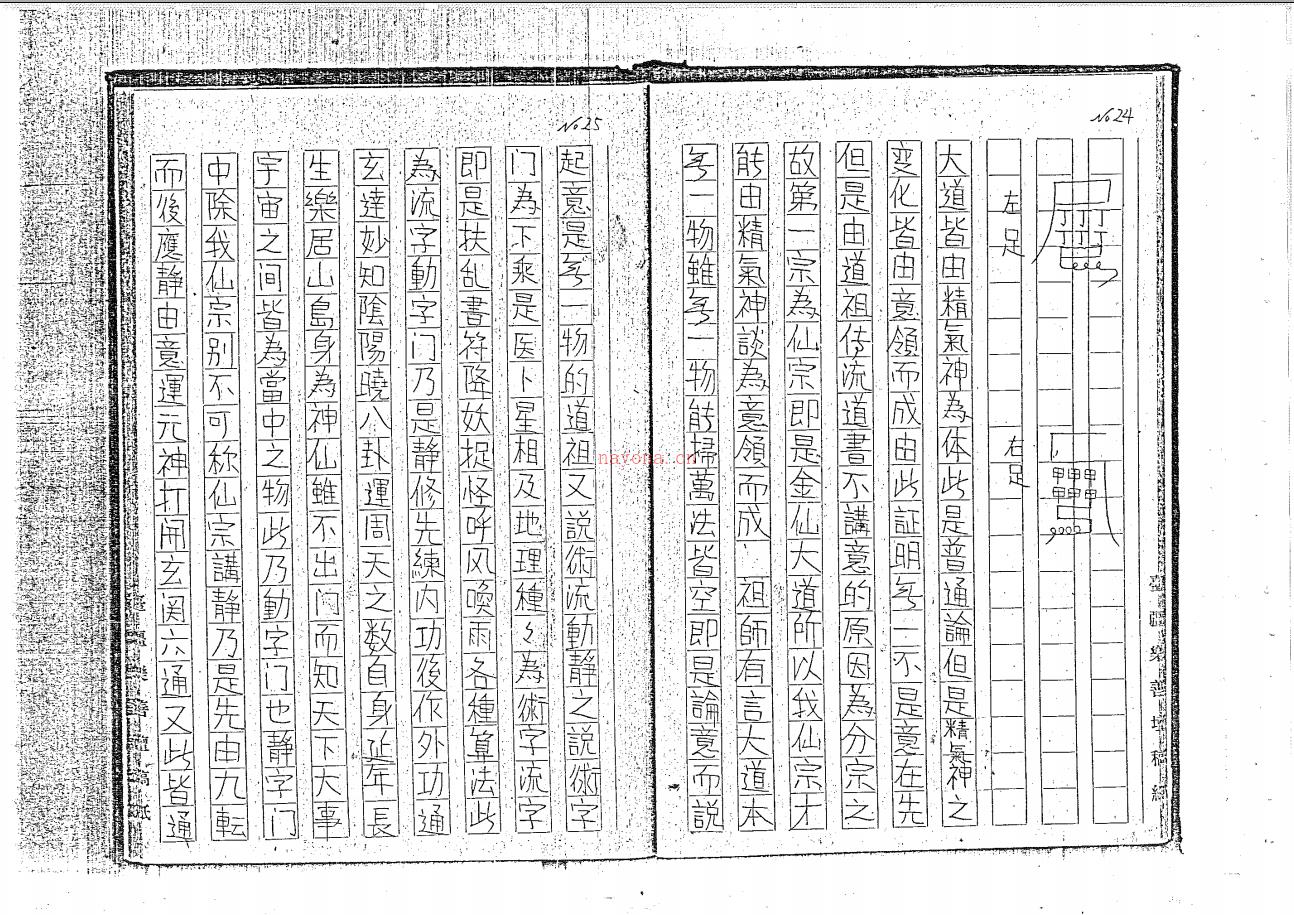 No 24
左足
右足
大道皆由精氣神為体此是普通論但是精氣神之
变化皆由意領而成由此証明無一不是意在先
但是由道祖传流道書不講意的原因為分宗之
故第一宗為仙宗即是金仙大道所以我仙宗才
能由精氣神談為意領而成、祖師有言大道本
無一物雖無一物能掃萬法皆空即是論意而説
臺疆樂善壇稿紙
No 25
起意是無一物的道祖又説術流動静之説術字
门為下乘是医卜星相及地理種々為術字流字
即是扶乩書符降妖捉怪呼风喚雨各種算法此
為流字動字门乃是静修先練内功後作外功通
玄達妙知陰陽曉八卦運周天之数自身延年長
生樂居山島身為神仙雖不出门而知天下大事
宇宙之间皆為當中之物此乃動字门也静字门
中除我仙宗别不可称仙宗講静乃是先由九転
而後應静由意運元神打開玄関六通又此皆通
臺疆樂善壇稿紙
nayona.cn